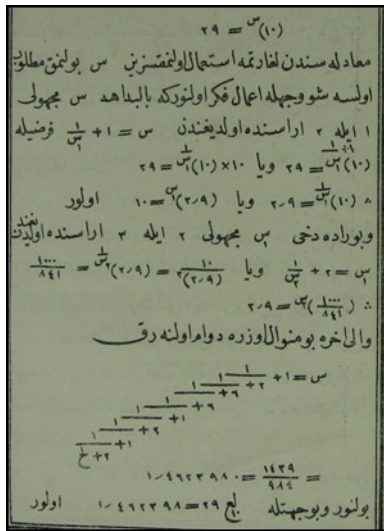 (١٠)^س = ٢٩
معادله سندن لغارتمه استعمال اولنمقسزین س بولنمق مطلوب
اولسه شو وجهله اعمال فکر اولنورکه بالبداهه س مجهولی
١ ایله ٢ اراسنده اولدیغندن س = ١ + ١/س فرضیله
(١٠)^١+١/س = ٢٩ ویا ١٠×(١٠)^١/س = ٢٩
∴ (١٠)^١/س = ٢٫٩ ویا (٢٫٩)^س = ١٠ اولور
وبوراده دخی س مجهولی ٢ ایله ٣ اراسنده اولدیغندن
س = ٢ + ١/س ویا ١٠/(٢٫٩)^٢ = (٢٫٩)^١/س = ١٠٠٠/٨٤١
∴ (١٠٠٠/٨٤١)^س = ٢٫٩
والی اخره بو منوال اوزره دوام اولنه رق
س = ١ + ١
٢ + ١
٦ + ١
٦ + ١
١ + ١
٢ + ١
١ + ١
٢ + الخ
= ١٤٣٩/٩٨٤ = ١٫٤٦٢٣٩٨٠
بولنور وبوجهتله لع ٢٩ = ١٫٤٦٢٣٩٨ اولور